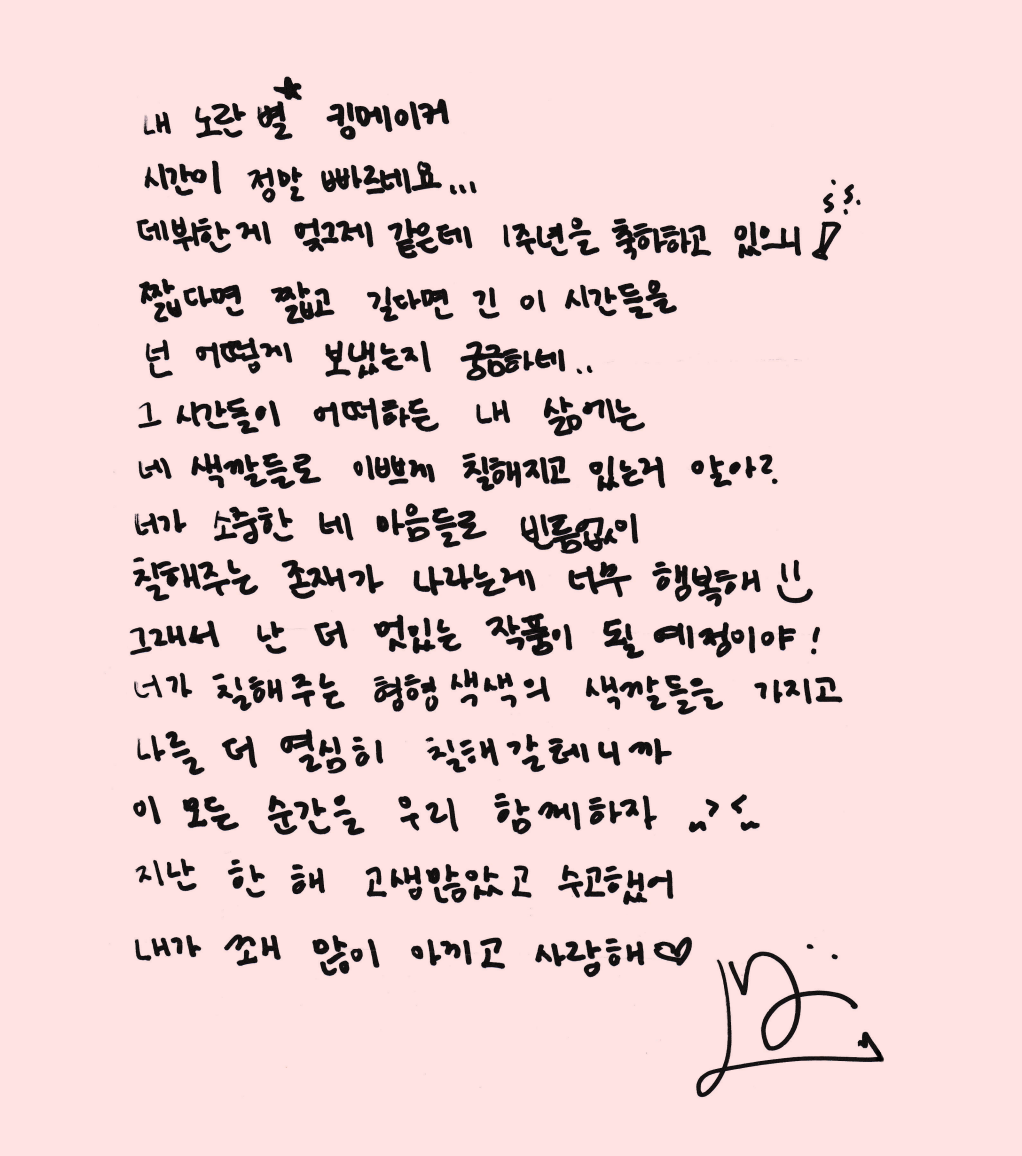 내 노란 별 킹메이커
시간이 정말 빠르네요...
데뷔한게 엊그제 같은데 1주년을 축하하고 있으니
짧다면 짧고 길다면 긴 이 시간들을
넌 어떻게 보냈는지 궁금하네..
그 시간들이 어떠하든 내 삶에는
네 색깔들로 이쁘게 칠해지고 있는거 알아?
너가 소중한 네 마음들로 빈틈없이
칠해주는 존재가 나라는게 너무 행복해 :)
그래서 난 더 멋있는 작품이 될 예정이야!
너가 칠해주는 형형색색의 색깔들을 가지고
나를 더 열심히 칠해갈테니까
이 모든 순간을 우리 함께하자
지난 한 해 고생많았고 수고했어
내가 쪼매 많이 아끼고 사랑해♡